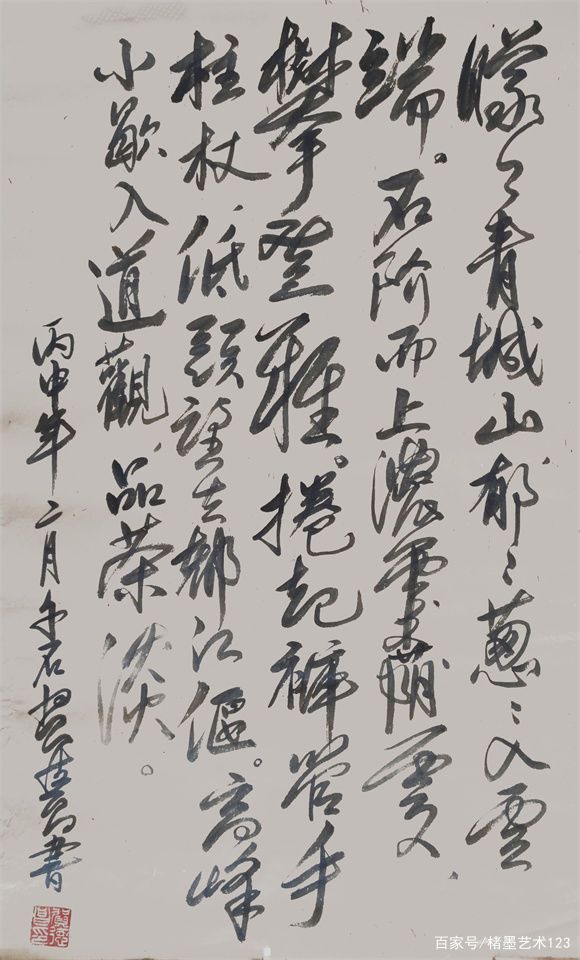 朦々青城山郁々葱々入云
端。石阶而上浓雾
攀登难。捲起裤管手
柱杖，低头望去都江偃。高峰
小歇入道觀，品茶淡。
丙申年二月 書
百家号/楮墨艺术123